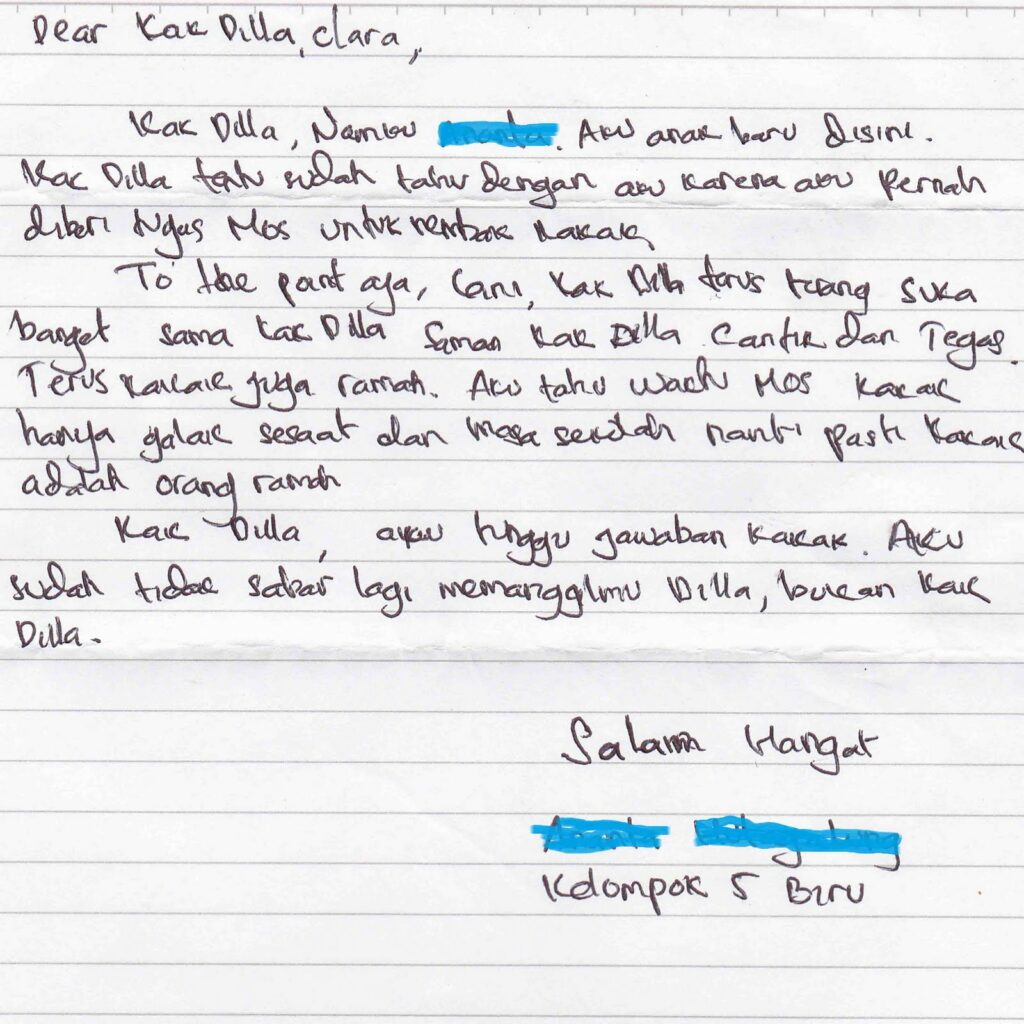 Dear Kak Dilla, Clara,
Kak Dilla, Namku. Aku anak baru disini.
Kak Dilla tentu sudah tahu dengan aku karena aku pernah
diberi tugas Mos untuk nembak kakak
To the point aja, Kak Dilla terus terang suka
banget sama Kak Dilla Kak Dilla Cantik dan Tegas.
Terus kakak juga ramah. Aku tahu waktu Mos kakak
hanya galak sesaat dan masa sekolah nanti pasti kakak
adalah orang ramah
Kak Dilla, aku tunggu jawaban kakak. Aku
sudah tidak sabar lagi memanggilmu Dilla, bukan Kak
Dilla.
Salam Hangat
Kelompok 5 Biru